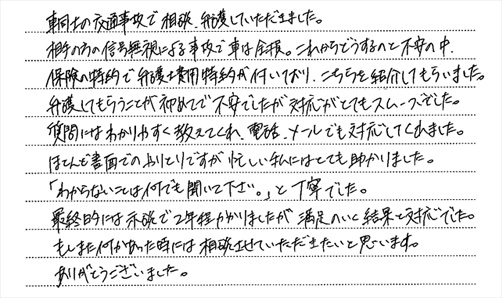 車同士の交通事故で相談、弁護していただきました。
相手の方の信号無視による事故で車は全損。これからどうするのと不安の中、
保険の特約で弁護士費用特約が付いており、こちらを紹介してもらいました。
弁護してもらうことが初めてで不安でしたが対応がとてもスムーズでした。
質問にはわかりやすく教えてくれ、電話、メールでも対応してくれました。
ほとんど書面でのやりとりですが忙しい私にはとても助かりました。
「わからないことは何でも聞いて下さい。」と丁寧でした。
最終的には示談で2年程かかりましたが満足のいく結果と対応でした。
もしまた何かあった時には相談させていただきたいと思います。
ありがとうございました。